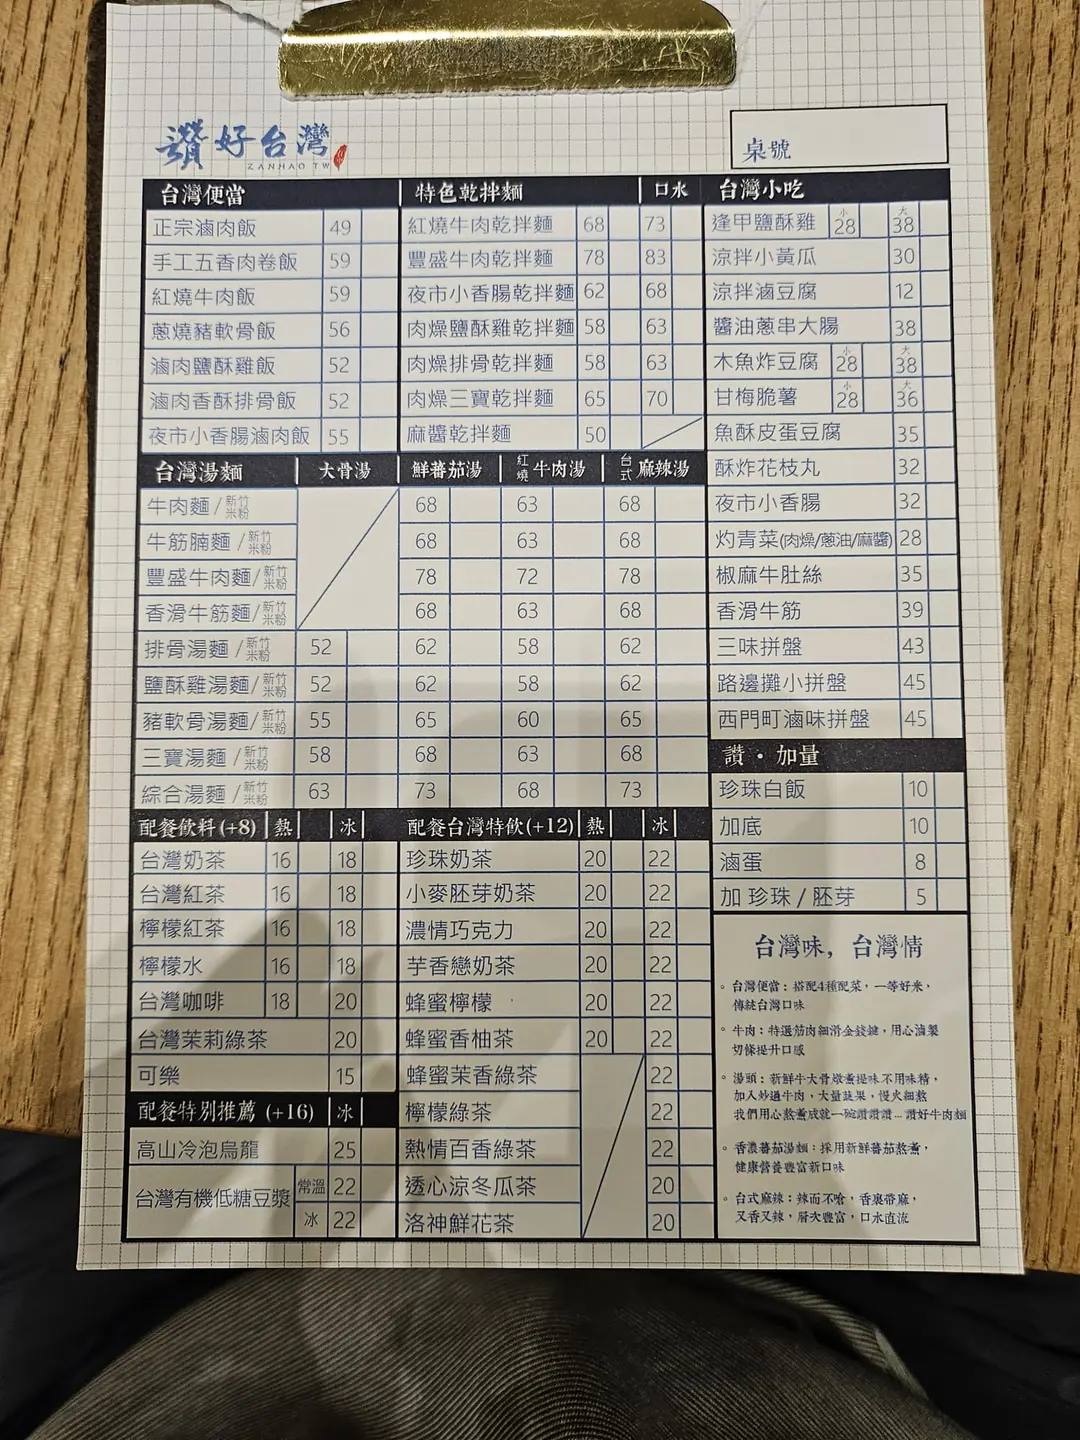 讚好台灣
ZANHAO TW
桌號
台灣便當
正宗滷肉飯 49
手工五香肉卷飯 59
紅燒牛肉飯 59
蔥燒豬軟骨飯 56
滷肉鹽酥雞飯 52
滷肉香酥排骨飯 52
夜市小香腸滷肉飯 55
特色乾拌麵 口水
紅燒牛肉乾拌麵 68 73
豐盛牛肉乾拌麵 78 83
夜市小香腸乾拌麵 62 68
肉燥鹽酥雞乾拌麵 58 63
肉燥排骨乾拌麵 58 63
肉燥三寶乾拌麵 65 70
麻醬乾拌麵 50
台灣小吃
逢甲鹽酥雞 小 28 大 38
涼拌小黃瓜 30
涼拌滷豆腐 12
醬油蔥串大腸 38
木魚炸豆腐 小 28 大 38
甘梅脆薯 小 28 大 36
魚酥皮蛋豆腐 35
酥炸花枝丸 32
夜市小香腸 32
灼青菜(肉燥/蔥油/麻醬) 28
椒麻牛肚絲 35
香滑牛筋 39
三味拼盤 43
路邊攤小拼盤 45
西門町滷味拼盤 45
台灣湯麵 大骨湯 鮮蕃茄湯 紅燒牛肉湯 台式麻辣湯
牛肉麵/新竹米粉 68 63 68
牛筋腩麵/新竹米粉 68 63 68
豐盛牛肉麵/新竹米粉 78 72 78
香滑牛筋麵/新竹米粉 68 63 68
排骨湯麵/新竹米粉 52 62 58 62
鹽酥雞湯麵/新竹米粉 52 62 58 62
豬軟骨湯麵/新竹米粉 55 65 60 65
三寶湯麵/新竹米粉 58 68 63 68
綜合湯麵/新竹米粉 63 73 68 73
讚・加量
珍珠白飯 10
加底 10
滷蛋 8
加 珍珠 / 胚芽 5
配餐飲料(+8) 熱 冰
台灣奶茶 16 18
台灣紅茶 16 18
檸檬紅茶 16 18
檸檬水 16 18
台灣咖啡 18 20
台灣茉莉綠茶 20
可樂 15
配餐特別推薦 (+16) 冰
高山冷泡烏龍 25
台灣有機低糖豆漿 常溫 22
冰 22
配餐台灣特飲(+12) 熱 冰
珍珠奶茶 20 22
小麥胚芽奶茶 20 22
濃情巧克力 20 22
芋香戀奶茶 20 22
蜂蜜檸檬 20 22
蜂蜜香柚茶 20 22
蜂蜜茉香綠茶 22
檸檬綠茶 22
熱情百香綠茶 22
透心涼冬瓜茶 20
洛神鮮花茶 20
台灣味，台灣情
。台灣便當：搭配4種配菜，一等好米，
傳統台灣口味
。牛肉：特選筋肉細滑金錢腱，用心滷製
切條提升口感
。湯頭：新鮮牛大骨燉熬提味不用味精，
加入炒過牛肉，大量蔬果，慢火細熬
我們用心熬熏成就一碗讚讚讚...讚好牛肉麵
。香濃蕃茄湯麵：採用新鮮蕃茄熬熏，
健康營養豐富新口味
。台式麻辣：辣而不嗆，香裏帶麻，
又香又辣，層次豐富，口水直流